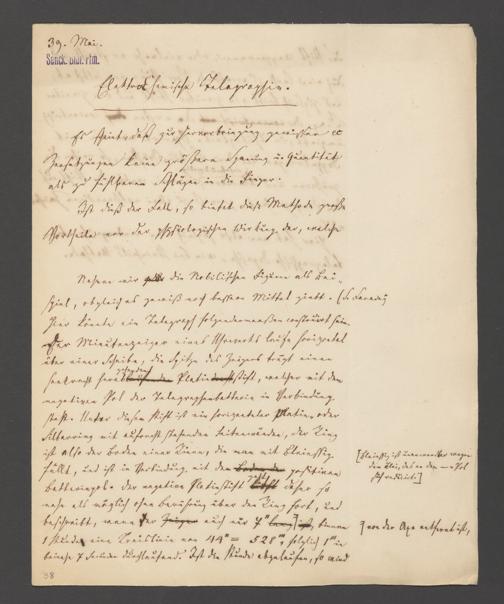 39. Mai.
Senck. Bibl. Ffm.
Elektrochemische Telegraphie.
Es scheint, daß zur Hervorbringung gewisser
Zersetzungen keine größere Spannung u: Quantität
als zu fühlbaren Schlägen in die Finger.
Ist dieß der Fall, so bietet diese Methode große
Vortheile vor der physiologischen Wirkung dar, welche
Nehmen wir die Nobilischen Figuren als Bei-
spiel, obgleich es gewiß noch bessere Mittel giebt.
Hier könnte ein Telegraph folgendermaaßen construirt sein.
Der Minutenzeiger eines Uhrwerks laufe horizontal
über einer Scheibe, die Spitze des Zeigers trägt einen
senkrecht Platin stift, welcher mit dem
negativen Pol der Telegraphenbatterie in Verbindung
steht. Unter diesem Stift ist ein horizontaler Platin, oder
Silberring mit aufrecht stehenden Seitenwänden, der Ring
ist also der Boden einer Rinne, die man mit Bleiessig
füllt, und ist in Verbindung mit dem positiven
Batteriepole der negative Platinstift daher so
nahe als möglich ohne Berührung über den Ring fort, und
beschreibt, wenn er auch nur 7" binnen
1 Stunde eine Kreislinie von 44" = 528''', folglich 1''' in
beinahe 7 Sekunden durchlaufend. Ist die Stunde abgelaufen, so wird
[Bleiessig ist anwendbar wegen
dem Blei, das an dem – Pol
sich reducirt.]
von der Axe entfernt ist,
38